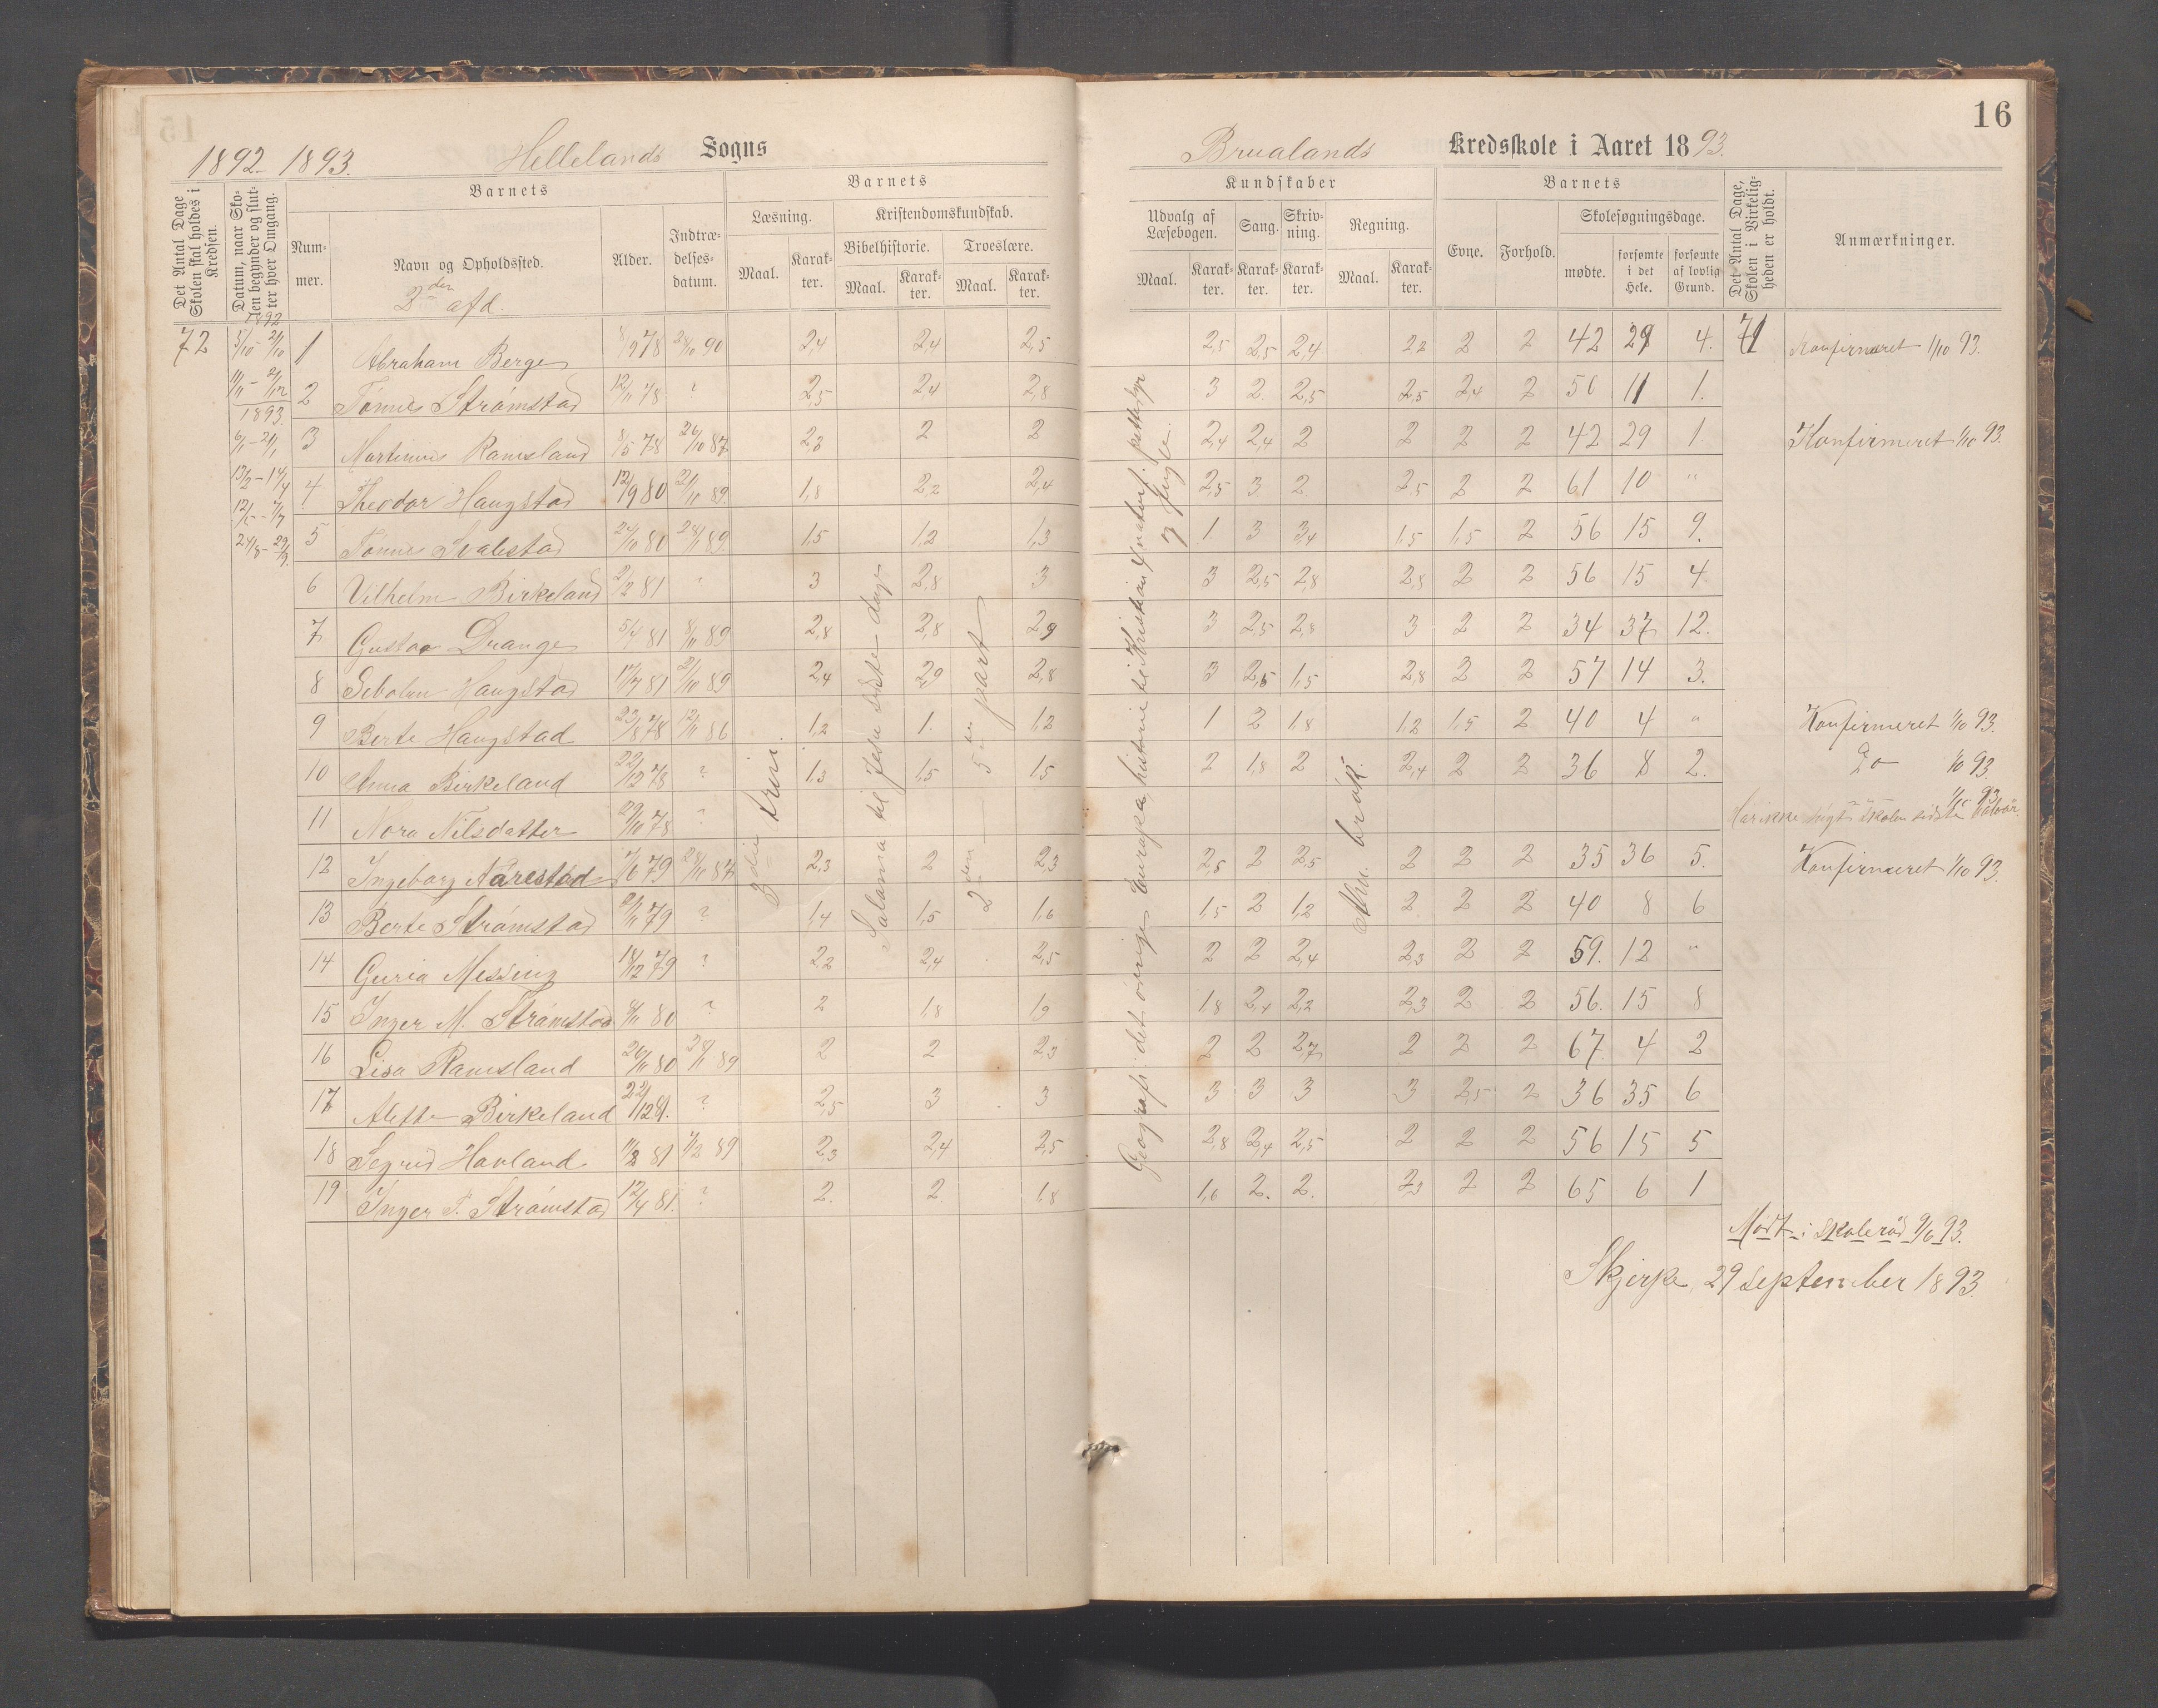 16
1892-1893. Hellelands Sogns
Brualands Kredsskole i Aaret 1893.
Det Antal Dage Skolen skal holdes i Kredsen.
Datum, naar Skolen begynder og slutter hver Omgang.
Barnets
Nummer.
Navn og Opholdssted.
2den afd.
Alder.
Indtrædelsesdatum.
Barnets
Læsning.
Maal.
Karakter.
Kristendomskundskab.
Bibelhistorie.
Maal.
Karakter.
Troeslære.
Maal.
Karakter.
Kundskaber
Udvalg af Læsebogen.
Maal.
Karakter.
Sang.
Karakter.
Skrivning.
Karakter.
Regning.
Maal.
Karakter.
Barnets
Evne.
Forhold.
Skolesøgningsdage.
mødte.
forsømte i det Hele.
forsømte af lovlig Grund.
Det Antal Dage, Skolen i Virkeligheden er holdt.
Anmærkninger.
72
1892
5/10 - 21/10
1893.
6/1 - 21/1
13/2 - 14/4
12/5 - 7/7
24/8 - 29/9
1 Abraham Berge 8/9 78 28/10 90 2,4 2,4 2,5 2,5 2,5 2,4 2,2 2 2 42 29 4. 71 Konfirmeret 1/10 93.
2 Tønnes Strømstad 12/11 78 ? 2,5 2,4 2,8 3 2 2,5 2,5 2,4 2 56 11 1.
3 Martinus Ramsland 8/5 78 26/10 87 2,3 2 2 2,4 2,4 2 2 2 2 42 29 1 Konfirmeret 1/10 93.
4 Theodor Haugstad 12/9 80 21/10 89 1,8 2,2 2,4 2,5 3 2 2,5 2 2 61 10 "
5 Tønnes Svalestad 24/10 80 28/11 89 1,5 1,2 1,3 1 3 3,4 1,5 1,5 2 56 15 9.
6 Vilhelm Birkeland 2/2 81 " 3 2,8 3 3 2,5 2,8 2,8 2 2 56 15 4.
7 Gustav Drange 5/4 81 8/11 89 2,8 2,8 2,9 3 2,5 2,8 3 2 2 34 37 12.
8 Haugstad 17/7 81 21/10 89 2,4 2,9 2,8 3 2,5 1,5 2,8 2 2 57 14 3.
9 Berte Haugstad 23/8 78 12/11 86 1,2 1. 1,2 1 2 1,8 1,2 1,5 2 40 4 " Konfirmeret 1/10 93.
10 Anna Birkeland 22/12 78 ? 1,3 1,5 1,5 2 1,8 2 2,4 2 2 36 8 2. Do 1/10 93.
11 Nora Nilsdatter 29/10 78 ? Har ikke søgt skolen sidste halvår. 1/10 93
12 Ingeborg Aarestad 7/6 79 28/10 87 2,3 2 2,3 2,8 2 2,5 2 2 2 35 36 5. Konfirmeret 1/10 93.
13 Berte Strømstad 21/11 79 ? 1,4 1,5 1,6 1,5 2 1,2 2 2 2 40 8 6
14 Guria Messing 18/12 79 ? 2,2 2,4 2,5 2 2 2,4 2,3 2 2 59. 12 "
15 Inger M. Strømstad 9/11 80 ? 2 1,8 1,9 1,8 2,4 2,2 2,3 2 2 56. 15 8
16 Lisa Ramsland 26/11 80 28/11 89 2 2 2,3 2 2 2,7 2 2 2 67 4 2
17 Alette Birkeland 22/12 81. ? 2,5 3 3 3 3 3 3 2,5 2 36 35 6
18 Segrid Havland 11/2 81 7/2 89 2,3 2,4 2,5 2,8 2,4 2,5 2 2 2 56 15 5
19 Inger T. Strømstad 12/4 81. ? 2. 2 1,8 1,6 2. 2. 2,3 2 2 65 6 1
3die trin.
Salama til Jesu sidste dage
2den 5te part
Geografi: det øvrige Europa, historie til Kristian 4 naturf. pattedyr og fugle.
alm. brøk.
Mødt i skoleråd 9/6 93.
Skjerpe, 29 september 1893.